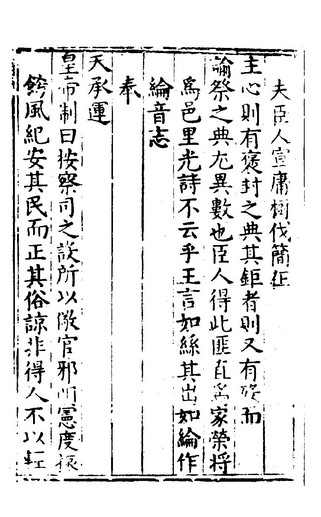 夫臣人宣庸樹伐簡在
主心則有褒封之典其鉅者則又有歿而
諭祭之典尤異數也臣人得此匪直爲家榮將
爲邑里光詩不云乎王言如絲其出如綸作
綸音志
奉
天承運
皇帝制曰按察司之設所以儆官邪憲度振
飭風紀安其民而正其俗諒非得人不以輕